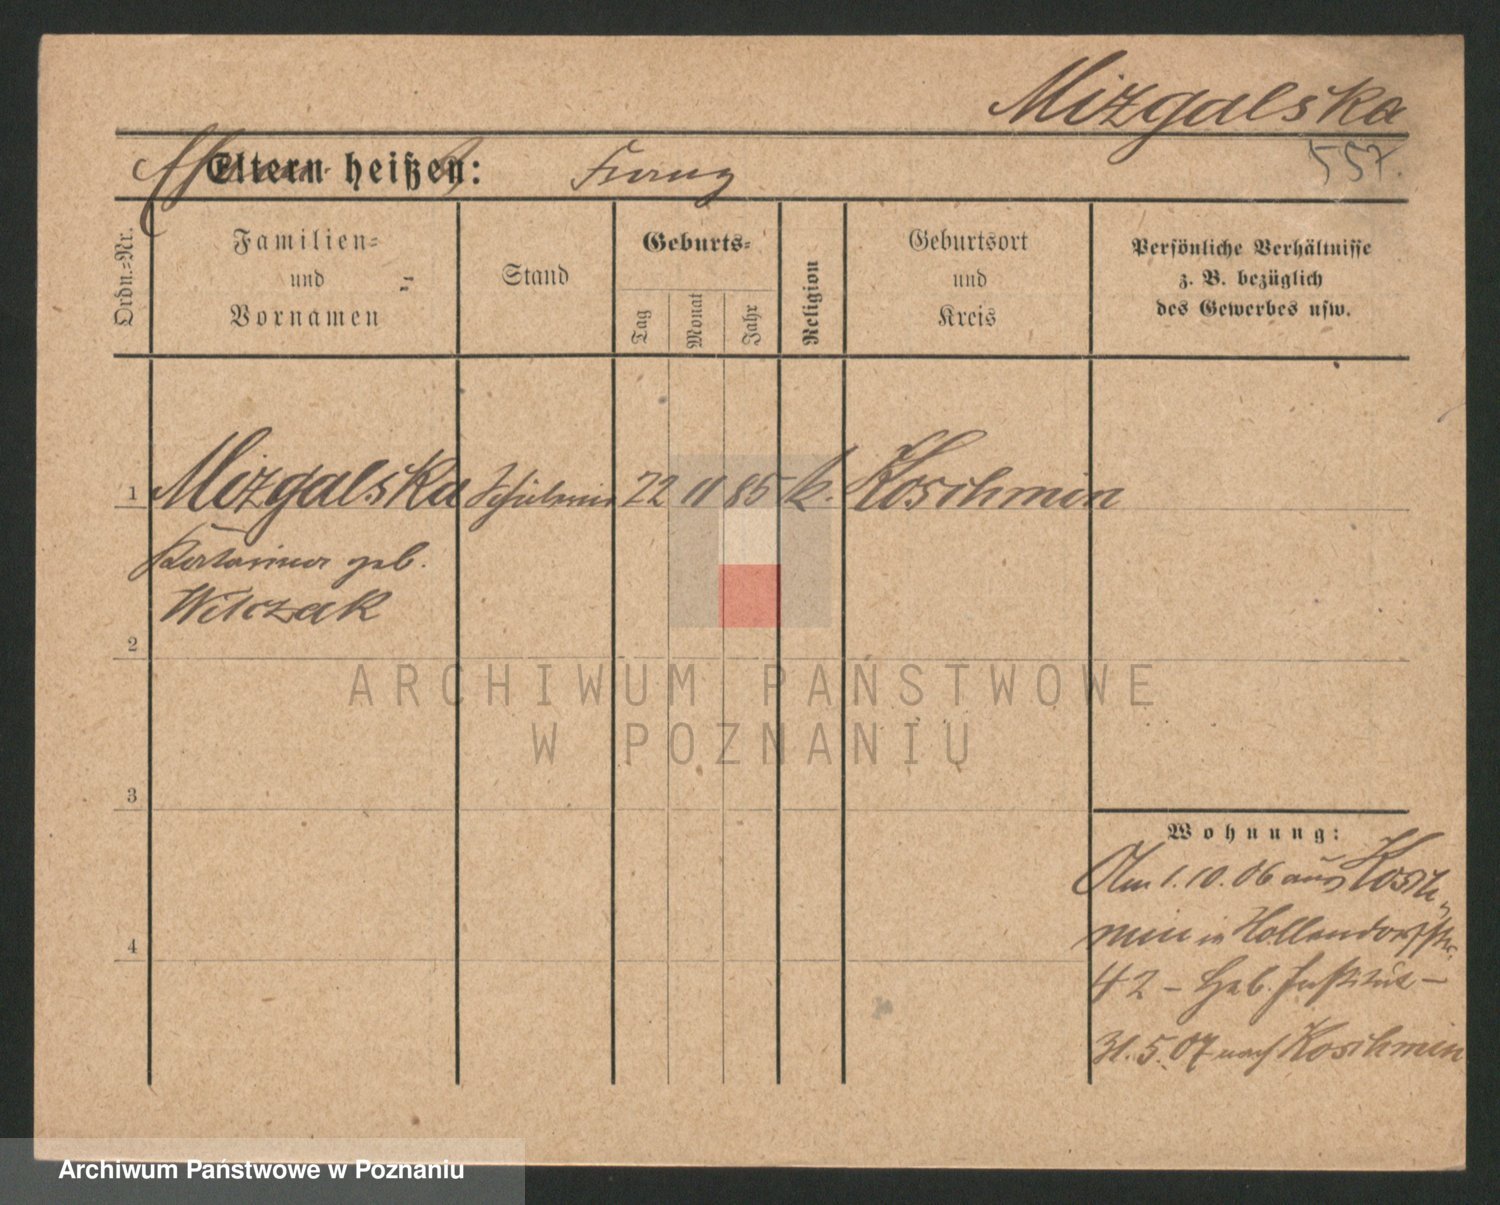 Mizgalska
557.
Eltern heißen: Franz
Ordn.-Nr.
Familien-
und
Vornamen
Stand
Geburts-
Tag
Monat
Jahr
Religion
Geburtsort
und
Kreis
Persönliche Verhältnisse
z. B. bezüglich
des Gewerbes usw.
1 Mizgalska Schülerin 22 11 85 k. Koschmin
Katarina geb.
Witczak
2
3
4
Wohnung:
Am 1.10.06 aus Kosch-
min in Hollendorfstr.
42 - Heb. Institut -
31.5.07 nach Koschmin
ARCHIWUM PAŃSTWOWE
W POZNANIU
Archiwum Państwowe w Poznaniu